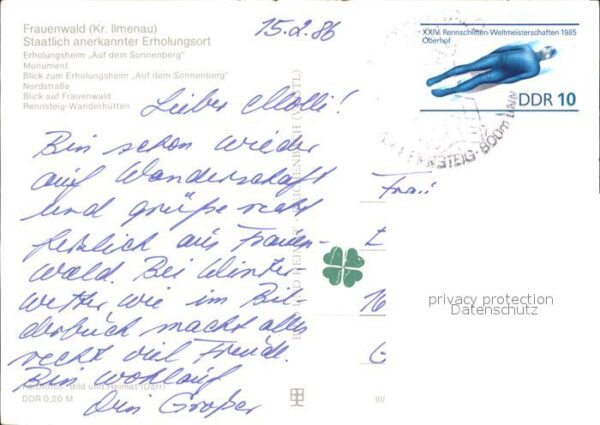 Frauenwald (Kr. Ilmenau)
Staatlich anerkannter Erholungsort
Erholungsheim „Auf dem Sonnenberg"
Monument
Blick zum Erholungsheim „Auf dem Sonnenberg"
Nordstraße
Blick auf Frauenwald
Rennsteig-Wanderhütten
15.2.86
XXIV. Rennschlitten-Weltmeisterschaften 1985
Oberhof
DDR 10
Lieber Molli!
Bin schon wieder
auf Wanderschaft
und grüße recht
herzlich aus Frauen-
wald. Bei Winter-
wetter wie im Bil-
derbuch macht alles
recht viel Freude.
Bin wohlauf
Dein Großer
Frau
16
G
Bild und Heimat
DDR 0,20 M
privacy protection
Datenschutz